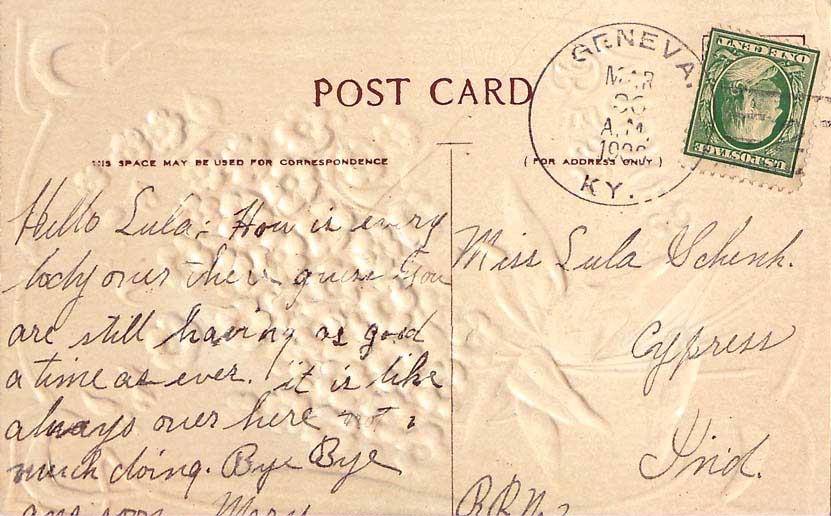 POST CARD
THIS SPACE MAY BE USED FOR CORRESPONDENCE
(FOR ADDRESS ONLY)
GENEVA.
MAR
A.M.
KY.
ONE CENT
U.S. POSTAGE
Hello Lula; How is every
body over there guess You
are still having as good
a time as ever. it is like
always over here not
much doing. Bye Bye
Mary
Miss Lula Schenk.
Cypress
Ind.